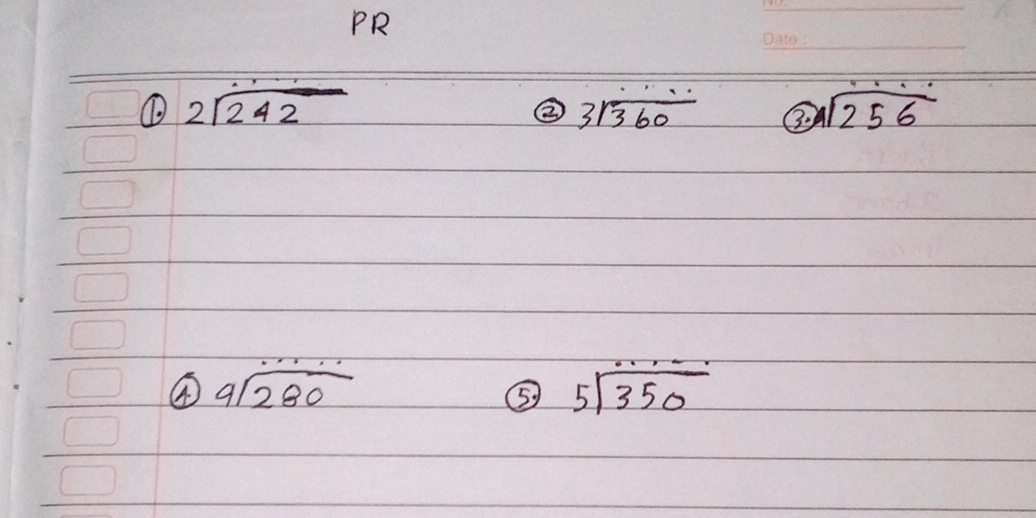 PR
No.
Date :
①. 2√242 ② 3√360 ③. 4√256
④. 4√280 ⑤. 5√350